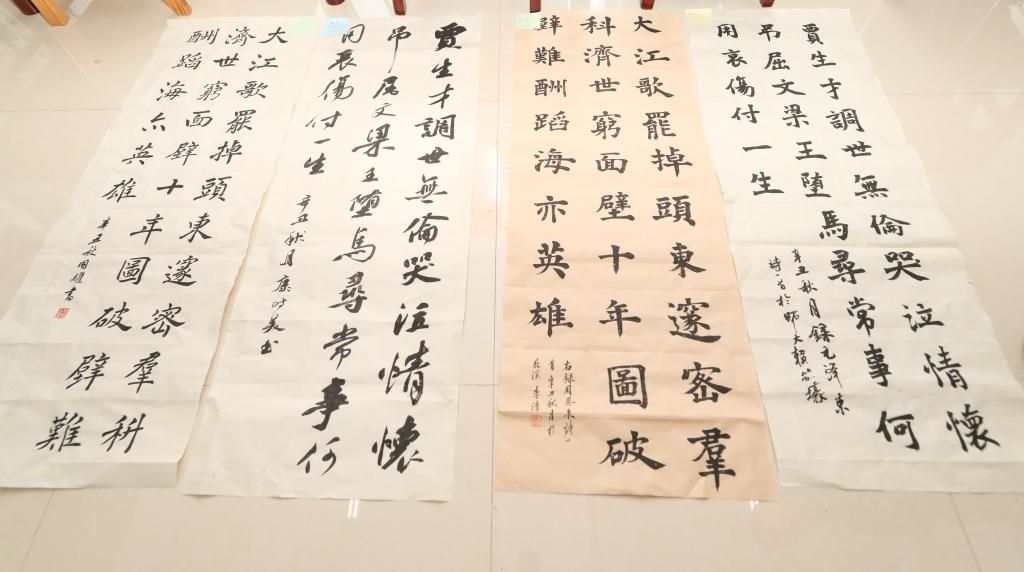 賈生才調世無倫哭泣情懷
吊屈文梁王堕馬尋常事何
用哀傷付一生
辛丑秋月錄毛澤東
詩一首於師大
大江歌罷掉頭東邃密羣
科濟世窮面壁十年圖破
壁難酬蹈海亦英雄
右録周恩来詩一
首辛丑秋月於
花溪
賈生才調世無倫哭泣情懷
吊屈文梁王堕馬尋常事何
用哀傷付一生
辛丑秋月康
大江歌罷掉頭東邃密羣科
濟世窮面壁十年圖破壁難
酬蹈海亦英雄
辛丑秋周雄書